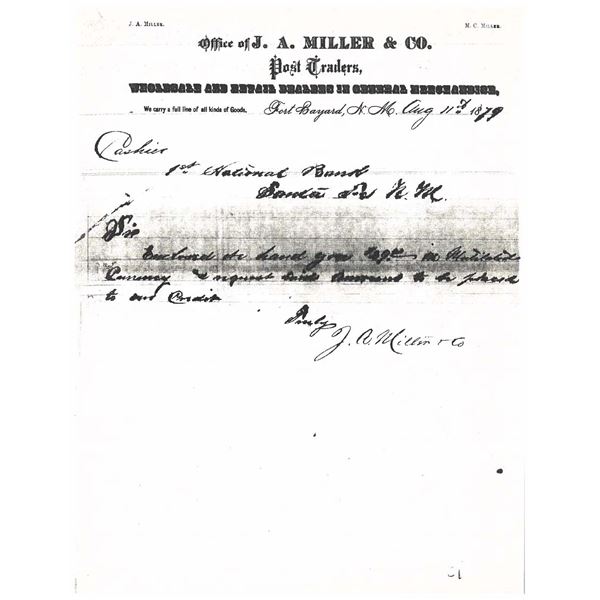 J. A. MILLER. M. C. MILLER.
Office of J. A. MILLER & CO.
Post Traders,
WHOLESALE AND RETAIL DEALERS IN GENERAL MERCHANDISE,
We carry a full line of all kinds of Goods. Fort Bayard, N. M. Aug 11th 1879
Cashier
1st National Bank
Santa Fe N. M.
Sir
Enclosed we hand you in Mutilated
Currency & request said amount to be placed
to our Credit
Truly
J. A. Miller & Co